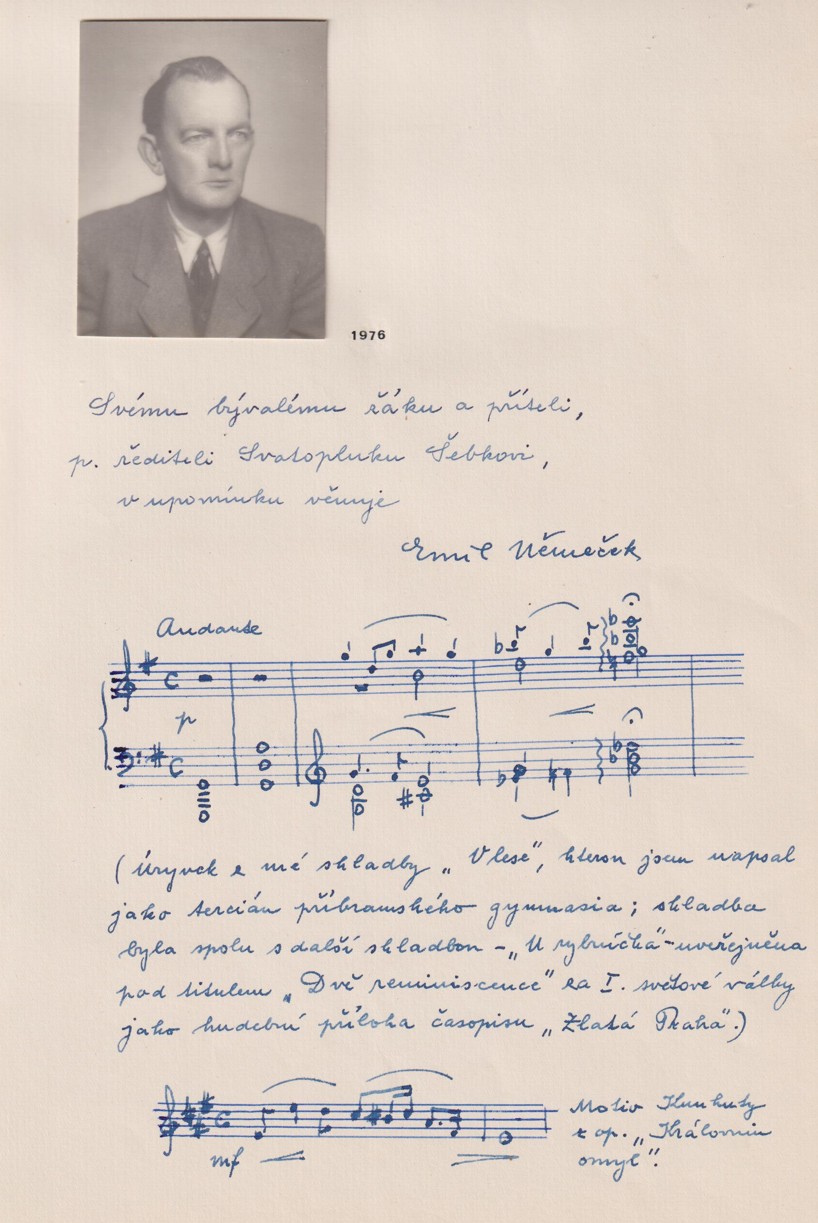 1976
Svému bývalému žáku a příteli,
p. řediteli Svatopluku Šebkovi,
v upomínku věnuje
Emil Němeček
Andante
p
(Úryvek z mé skladby „V lese", kterou jsem napsal
jako tercián příbramského gymnasia; skladba
byla spolu s další skladbou – „U rybníčka" – uveřejněna
pod titulem „Dvě reminiscence" za I. světové války
jako hudební příloha časopisu „Zlatá Praha".)
mf
Motiv Kunhuty
z op. „Královnin
omyl".